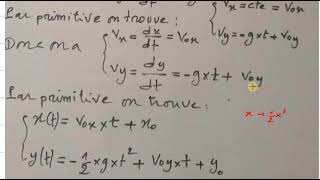 Par primitive on trouve :
{ Vx = cte = V0x
Vy = -gxt + V0y
Donc on a { Vx = dx/dt = V0x
Vy = dy/dt = -gxt + V0y
Par primitive on trouve :
{ x(t) = V0x x t + x0
x → 1/2 x²
y(t) = -1/2 x g x t² + V0y x t + y0